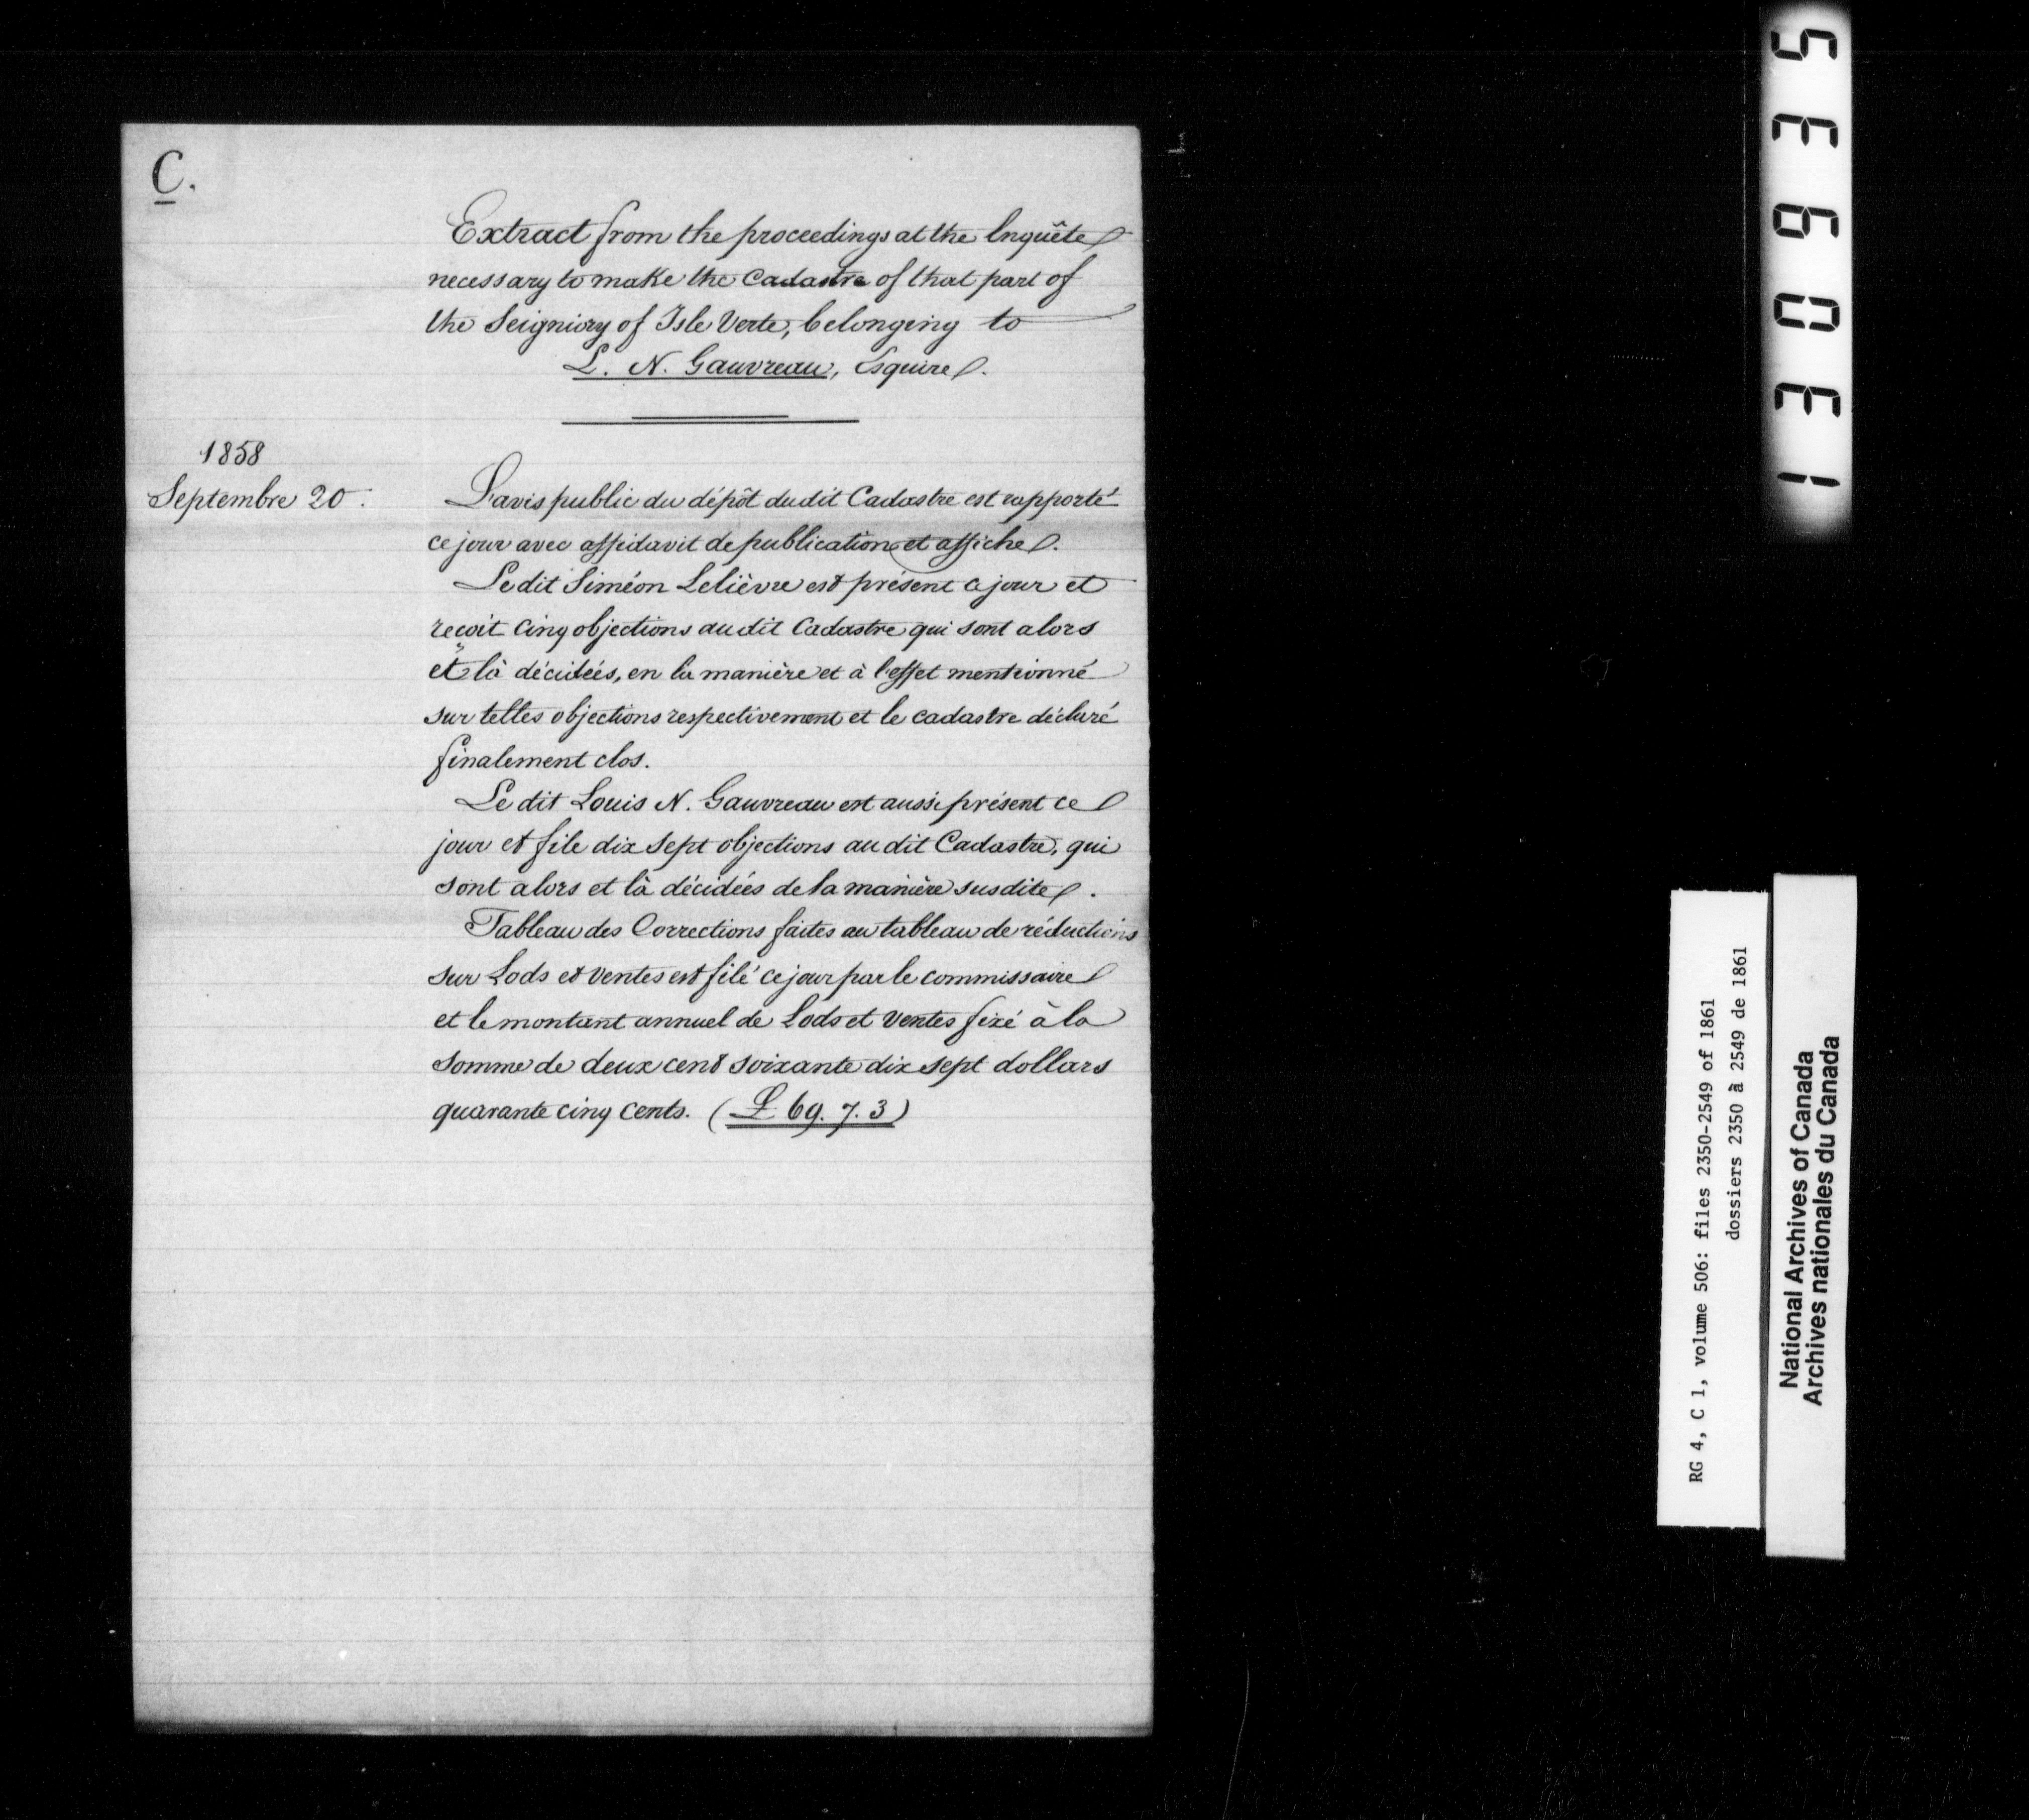 C.
Extract from the proceedings at the Enquête
necessary to make the Cadastre of that part of
the Seigniory of Isle Verte, belonging to
L. N. Gauvreau, Esquire.
1858
Septembre 20.
L'avis public du dépôt du dit Cadastre est rapporté
ce jour avec affidavit de publication et affiche.
Le dit Siméon Lelièvre est présent ce jour et
reçoit cinq objections au dit Cadastre qui sont alors
et là décidées, en la manière et à l'effet mentionné
sur telles objections respectivement et le cadastre déclaré
finalement clos.
Le dit Louis N. Gauvreau est aussi présent ce
jour et file dix sept objections au dit Cadastre, qui
sont alors et là décidées de la manière susdite.
Tableau des Corrections faites au tableau de réductions
sur Lods et ventes est filé ce jour par le commissaire
et le montant annuel de Lods et ventes fixé à la
somme de deux cent soixante dix sept dollars
quarante cinq cents. (£ 69. 7. 3)
130935
RG 4, C 1, volume 506: files 2350-2549 of 1861
dossiers 2350 à 2549 de 1861
National Archives of Canada
Archives nationales du Canada